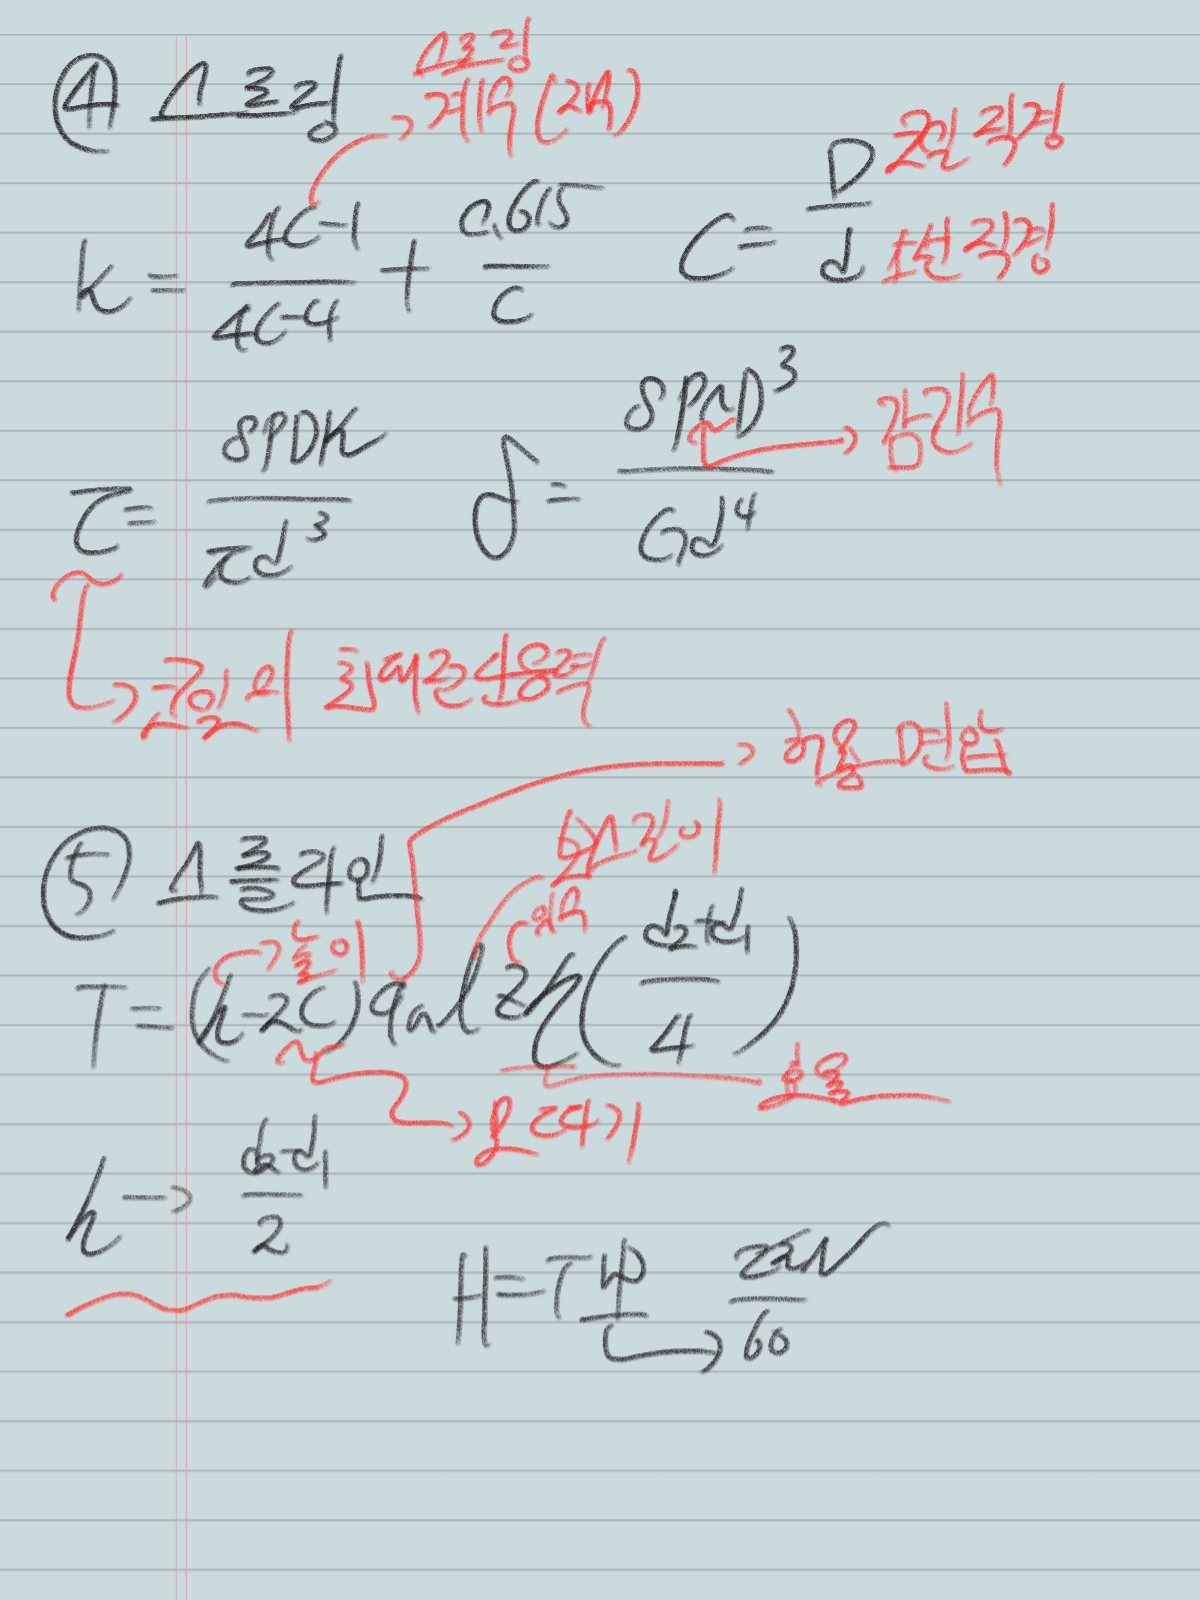 ④ 스프링
스프링
계수(지수)
K = (4C-1)/(4C-4) + 0.615/C
C = D/d
코일 직경
소선 직경
τ = 8PDK/πd³
δ = 8PnD³/Gd⁴
감김수
코일의 최대전단응력
허용 면압
⑤ 스플라인
보스길이
높이
잇수
T = (h-2C)qalzη((d₂+d₁)/4)
효율
모따기
h → (d₂-d₁)/2
H = Tω → 2πN/60